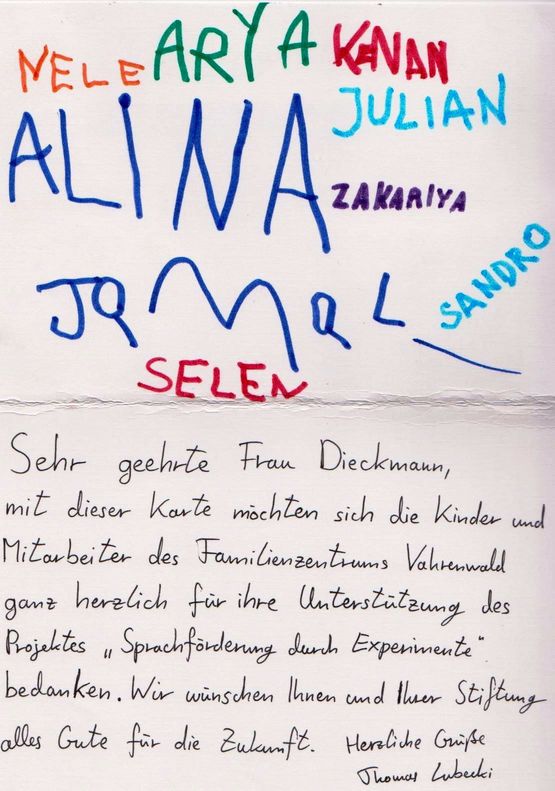 NELE ARYA KENAN
JULIAN
ALINA
ZAKARIYA
SANDRO
JaMaL
SELEN
Sehr geehrte Frau Dieckmann,
mit dieser Karte möchten sich die Kinder und
Mitarbeiter des Familienzentrums Vahrenwald
ganz herzlich für ihre Unterstützung des
Projektes „Sprachförderung durch Experimente“
bedanken. Wir wünschen Ihnen und Ihrer Stiftung
alles Gute für die Zukunft. Herzliche Grüße
Thomas Lubecki